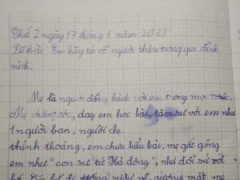 Thứ 2 ngày 17 tháng 1 năm 2022
Đề bài: Em hãy tả về người thân trong gia đình
mình.
Mẹ là người đồng hành với em trong mọi
Mẹ chăm sóc, dạy em học bài, tâm sự với em như
1 người bạn, người chị.
thỉnh thoảng, em chưa hiểu bài, mẹ gắt gỏng
em như "con sư tử Hà đông", như đối xử với